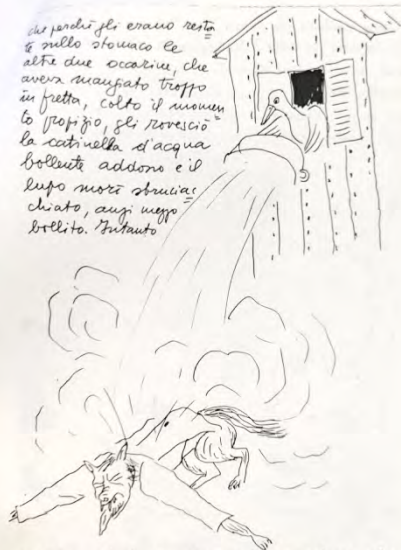 che perchè gli erano resta
te sullo stomaco le
altre due ocarine, che
aveva mangiato troppo
in fretta, colto il momen
to propizio, gli rovesciò
la catinella d'acqua
bollente addosso e il
lupo morì sbruciac
chiato, anzi mezzo
bollito. Intanto